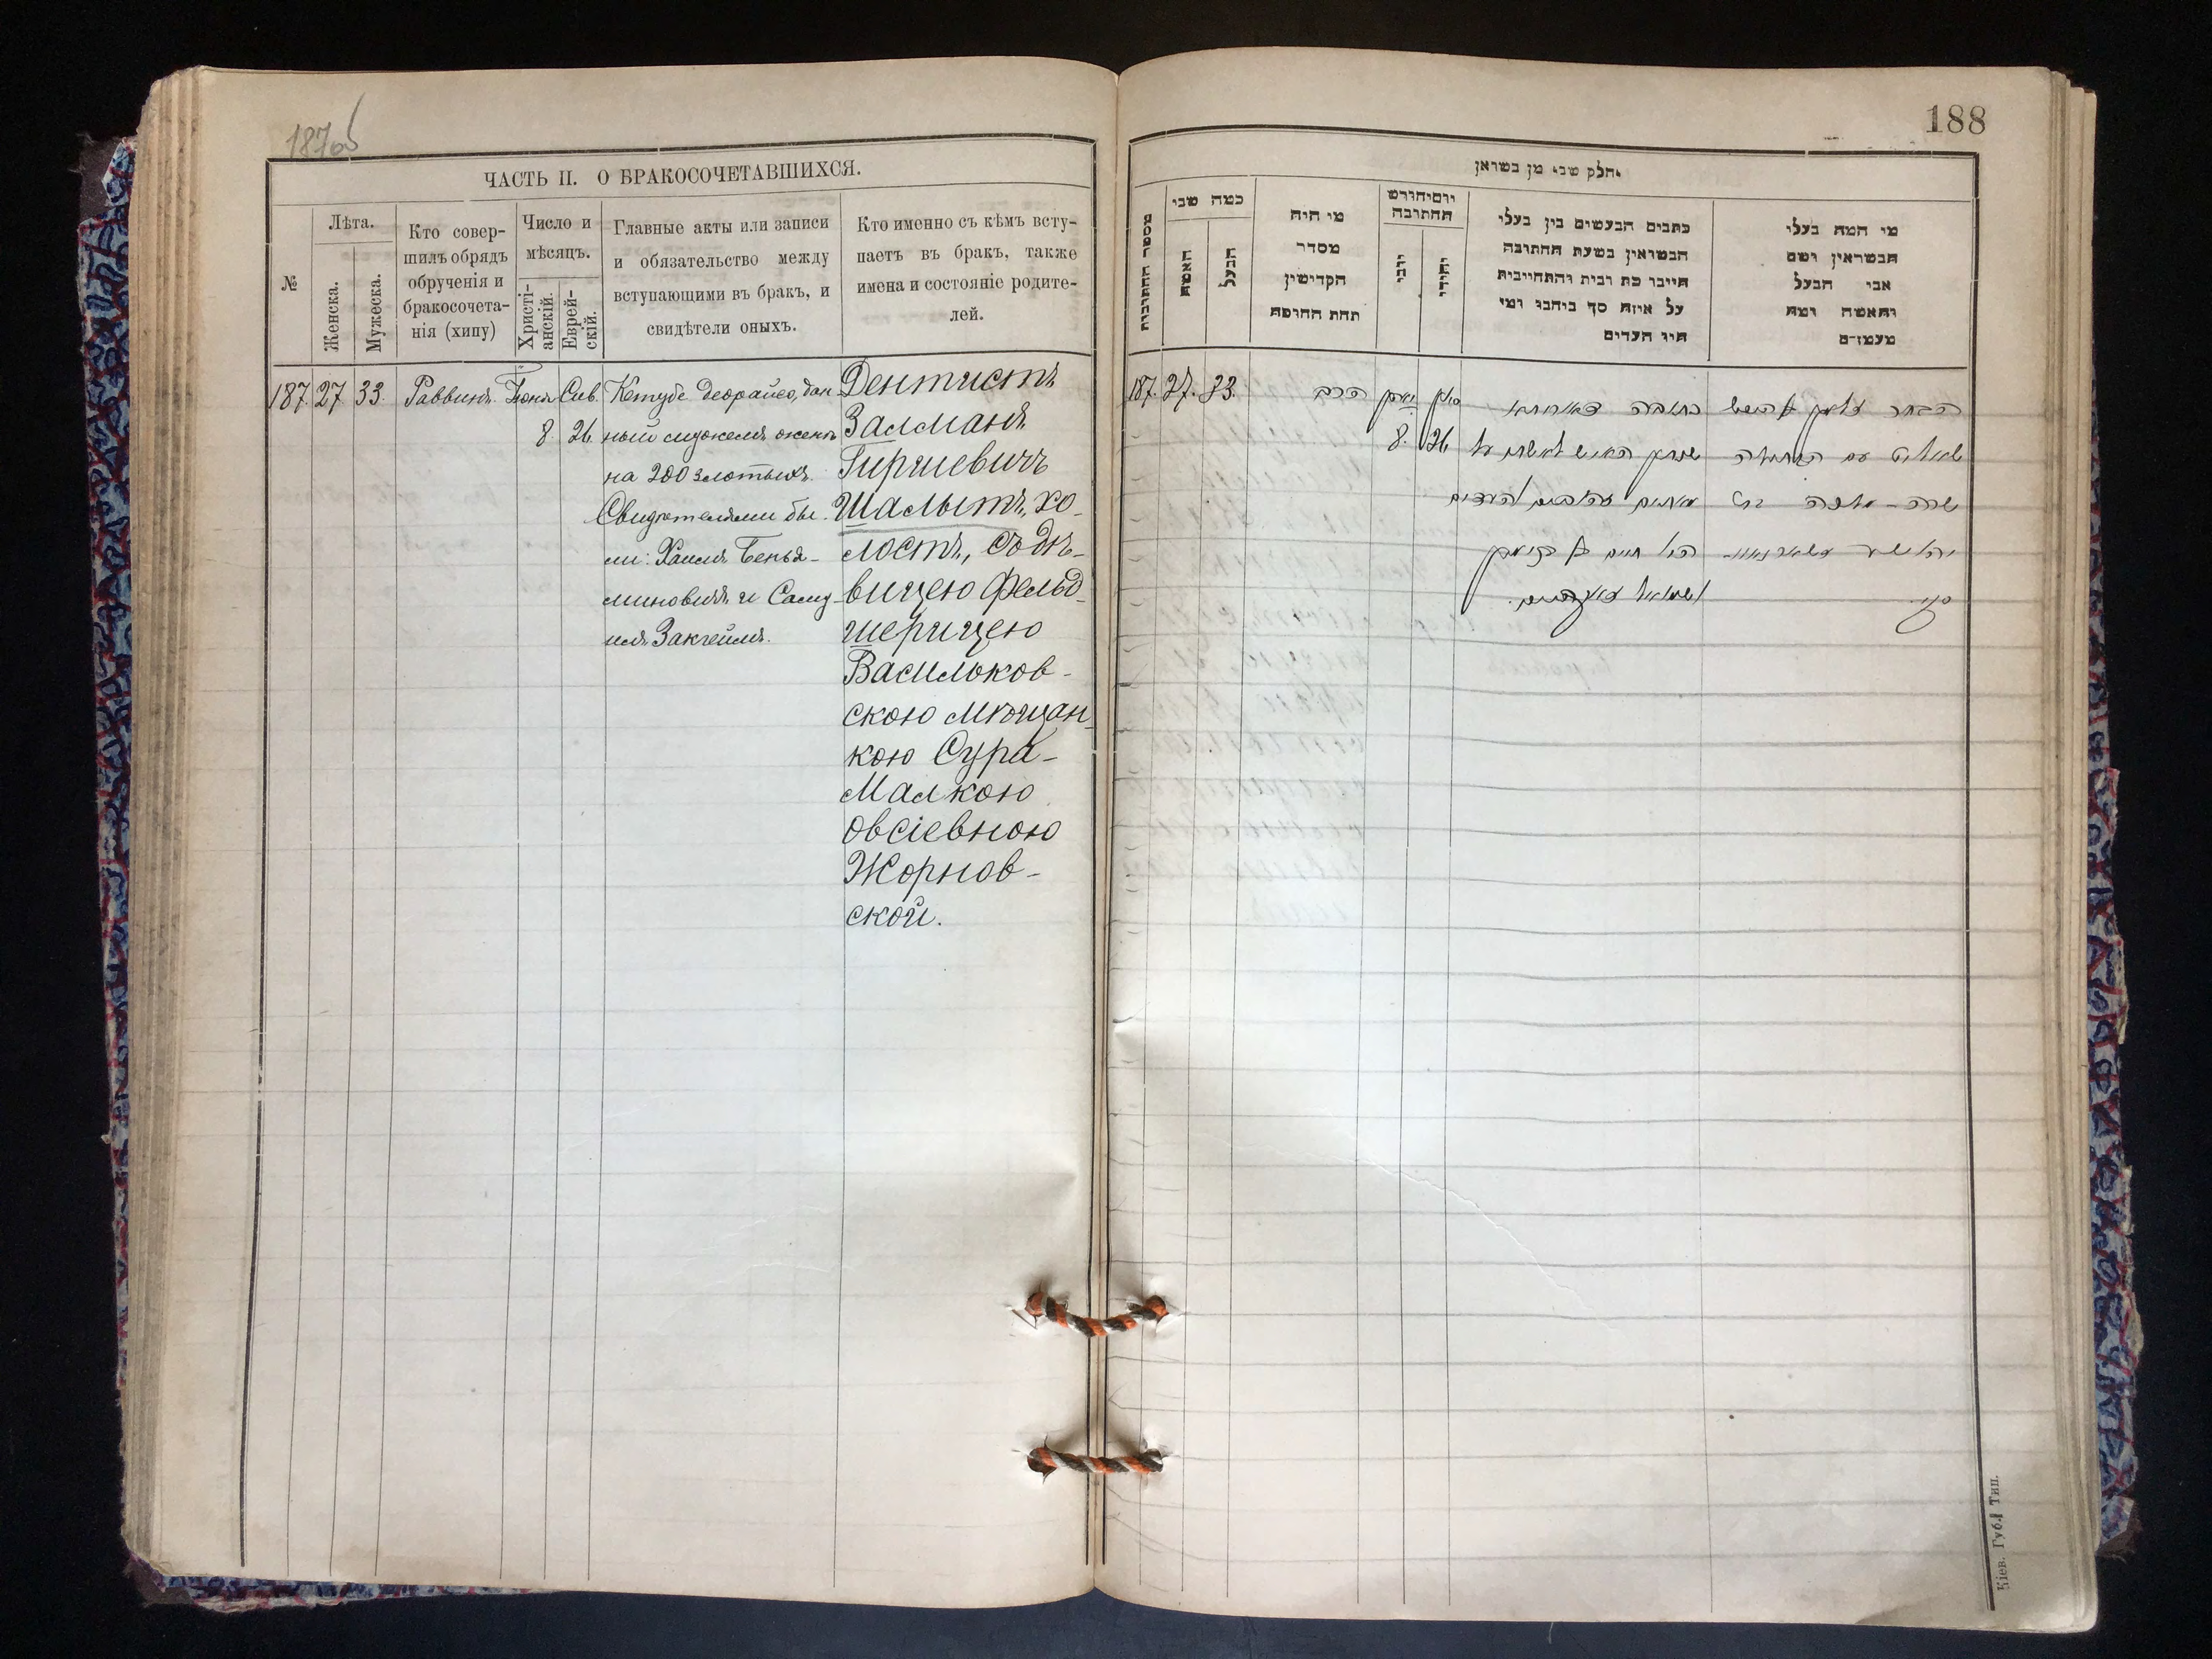 187об
ЧАСТЬ II. О БРАКОСОЧЕТАВШИХСЯ.
№
Лѣта.
Женска.
Мужеска.
Кто совер-
шилъ обрядъ
обрученія и
бракосочета-
нія (хипу)
Число и
мѣсяцъ.
Христі-
анскій.
Еврей-
скій.
Главные акты или записи
и обязательство между
вступающими въ бракъ, и
свидѣтели оныхъ.
Кто именно съ кѣмъ всту-
паетъ въ бракъ, также
имена и состояніе родите-
лей.
187. 27. 33. Раввинъ Іюня 8 Сив. 26
Кетубе деорайсо, дан-
ный мужемъ женѣ
на 200 злотыхъ.
Свидѣтелями бы-
ли: Хаимъ Бенья-
миновичъ и Саму-
илъ Закгеймъ.
Дентистъ
Залманъ
Гиршевичъ
Шалытъ, хо-
лостъ, съ дѣ-
вицею фельд-
шерицею
Васильков-
скою мѣщан-
кою Сура-
Малкою
Овсіевною
Жорнов-
ской.
188
חלק שני מן נשואין
מספר החתונות
כמה שני
האשה
הבעל
מי היה
מסדר
הקדישין
תחת החופה
יום יחודש
החתונה
יוני
יהודי
כתבים הנעשים בין בעלי
הנשואין בשעת החתונה
חייבו כת רבית והתחייבות
על איזה סך ניתנו ומי
היו העדים
מי המה בעלי
הנשואין ושם
אבי הבעל
והאשה ומה
מעמדם
187. 27. 33. הרב יוני 8. סיון 26
כתובה דאורייתא
שנתן האיש לאשתו על
מאתים זהובים והעדים
היו חיים
הבחור זלמן
שאליט עם הבתולה
שרה - מלכה בת
יהושע
Кіев. Губ. Тип.